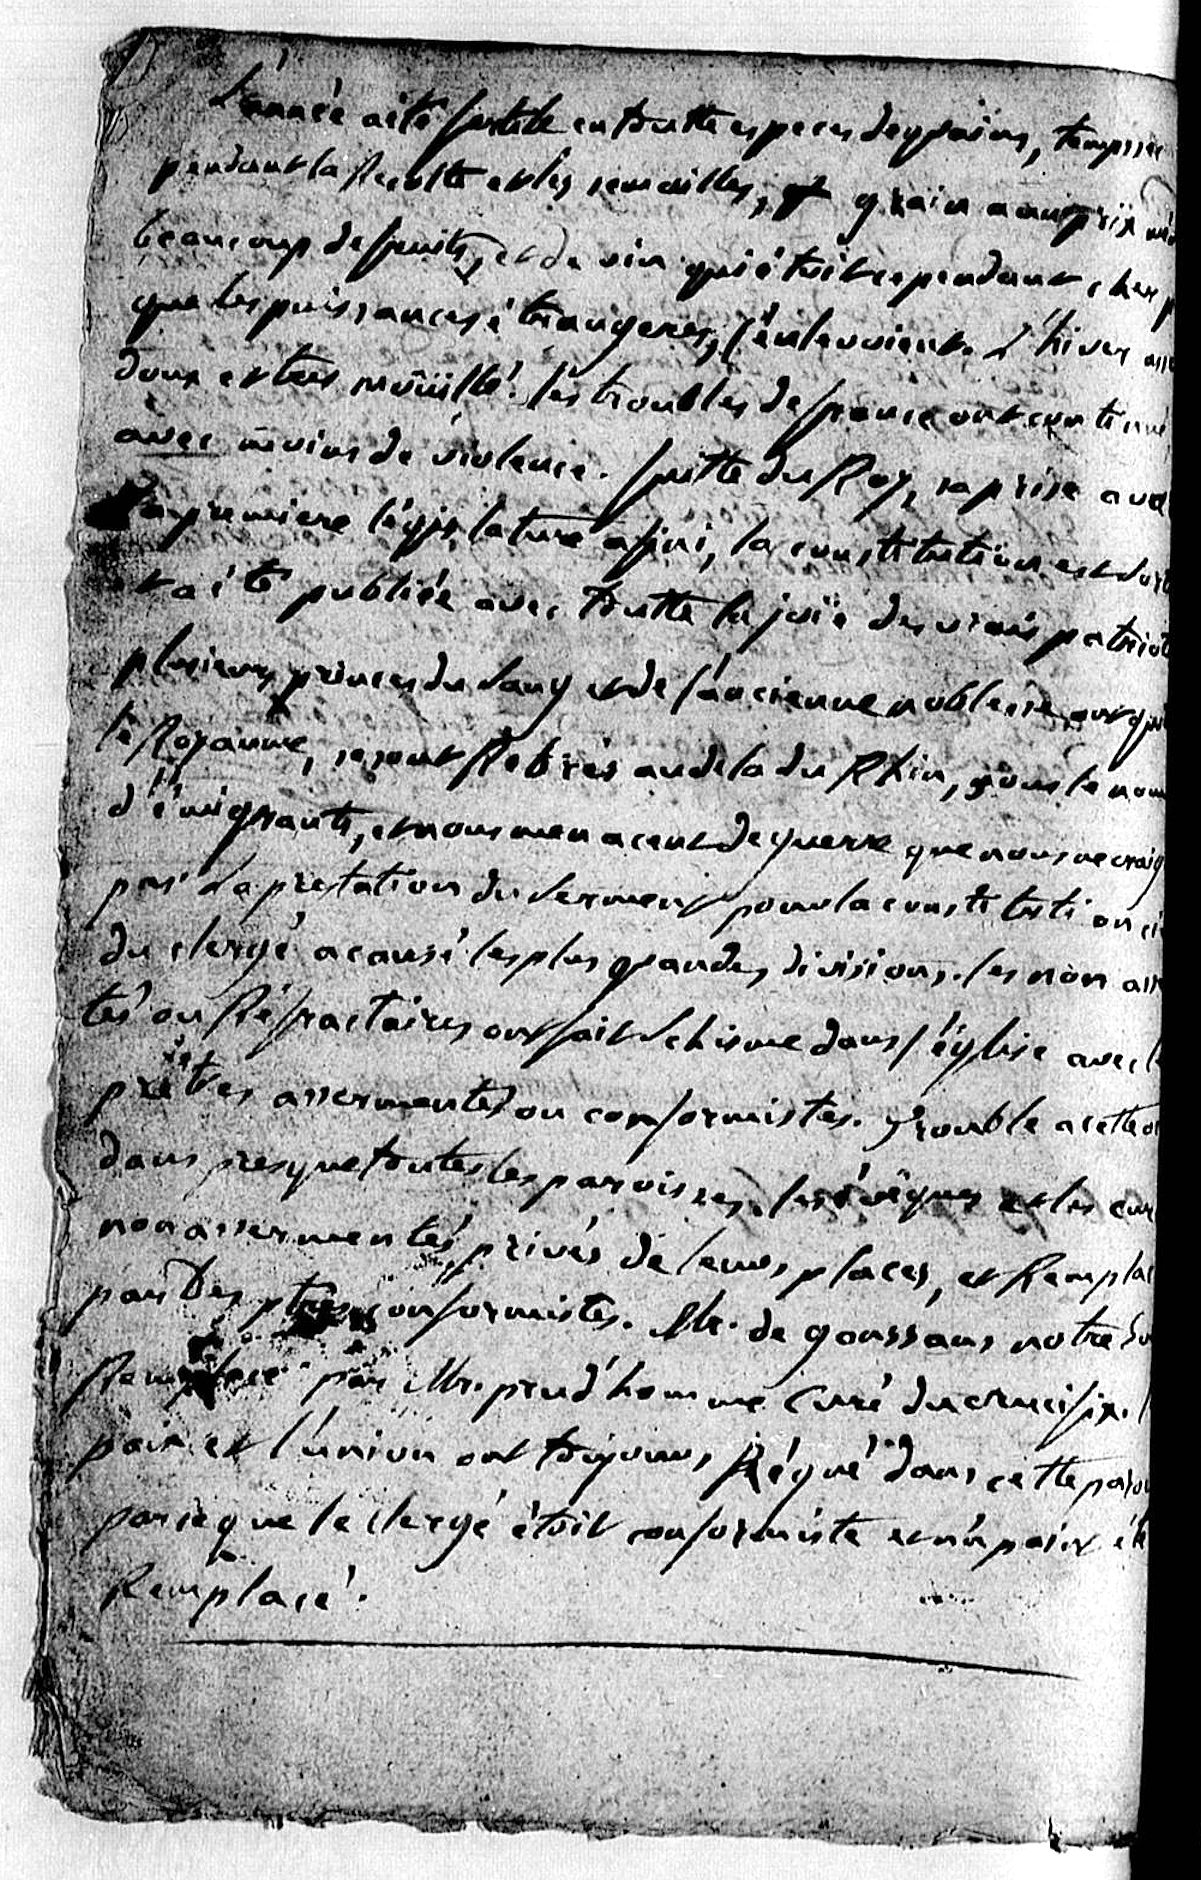 L'année a été fertile en toutte especes de grains, temps sec
pendant la Recolte et les semailles, grain a un prix
beaucoup de fruits, et de vin qui étoit cependant cher
que les puissances étrangeres, l'enlevoient. L'hiver
doux et tres moüillé. les troubles de france ont continué
avec moins de violence. fuitte du Roy, sa prise a
La premiere législature a fini, la constitution est
et a été publiée avec toutte la joïe des vrais patriot
plusieurs princes du sang et de l'ancienne noblesse ont
le Royaume, se sont Retirés au dela du Rhin, sous le nom
d'émigrants, et nous menacent de guerre que nous ne craig
pas. La prestation du serment pour la constitution ci
du clergé a causé les plus grandes divisions. les non ass
tés ou Réfractaires ont fait schisme dans l'église avec l
prêtres assermentés ou conformistes. Trouble a cette
dans presque toutes les paroisses. les évêques et les cur
non assermentés privés de leurs places, et Remplac
par Des ptres conformistes. Mr. de goussans notre
Remplacé par Mr. prud'homme Curé du crucifix.
paix et l'union ont toujours Régné dans cette paroi
parceque le clergé étoit conformiste et n'a point été
Remplacé.